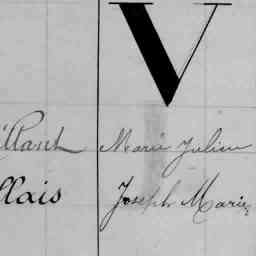 V
Marie Julien
llais Joseph Marie